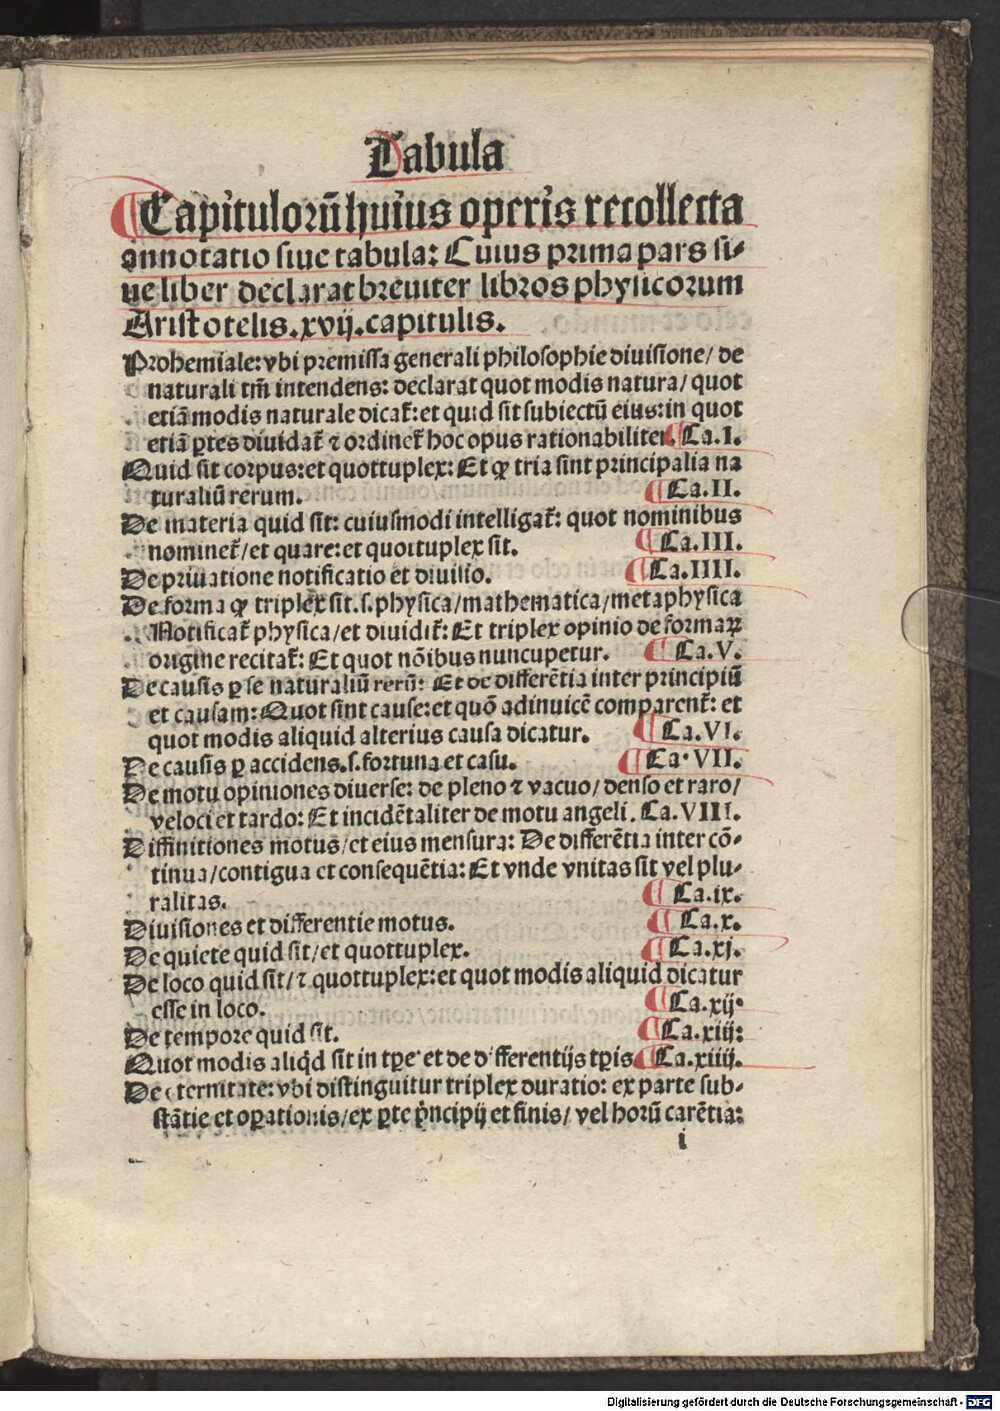 Tabula
¶Capitulorũ huius operis recollecta
annotatio siue tabula: Cuius prima pars si-
ue liber declarat breuiter libros physicorum
Aristotelis.xvij.capitulis.
Prohemiale: vbi premissa generali philosophie diuisione/ de
naturali tm̃ intendens: declarat quot modis natura/ quot
etiã modis naturale dicat᷑: et quid sit subiectũ eius: in quot
etiã ꝑtes diuidat᷑ ⁊ ordinet᷑ hoc opus rationabiliter. ¶Ca.I.
Quid sit corpus: et quottuplex: Et ꝙ tria sint principalia na
turaliũ rerum. ¶Ca.II.
De materia quid sit: cuiusmodi intelligat᷑: quot nominibus
nominet᷑/et quare: et quottuplex sit. ¶Ca.III.
De priuatione notificatio et diuisio. ¶Ca.IIII.
De forma ꝙ triplex sit.s.physica/mathematica/metaphysica
Notificat᷑ physica/et diuidit᷑: Et triplex opinio de formaꝝ
origine recitat᷑: Et quot nõibus nuncupetur. ¶Ca.V.
De causis ꝑ se naturaliũ rerũ: Et de differẽtia inter principiũ
et causam: Quot sint cause: et quõ adinuicẽ comparent᷑: et
quot modis aliquid alterius causa dicatur. ¶Ca.VI.
De causis ꝑ accidens.s.fortuna et casu. ¶Ca.VII.
De motu opiniones diuerse: de pleno ⁊ vacuo/ denso et raro/
veloci et tardo: Et incidẽtaliter de motu angeli. Ca.VIII.
Diffinitiones motus/et eius mensura: De differẽtia inter cõ-
tinua/contigua et consequẽtia: Et vnde vnitas sit vel plu-
ralitas. ¶Ca.ix.
Diuisiones et differentie motus. ¶Ca.x.
De quiete quid sit/et quottuplex. ¶Ca.xj.
De loco quid sit/⁊ quottuplex: et quot modis aliquid dicatur
esse in loco. ¶Ca.xij.
De tempore quid sit. ¶Ca.xiij:
Quot modis aliqd sit in tꝑe et de differentijs tꝑis ¶Ca.xiiij.
De eternitate: vbi distinguitur triplex duratio: ex parte sub-
stãtie et oꝑationis/ex ꝑte p̃ncipij et finis/ vel horũ carẽtia:
i
Digitalisierung gefördert durch die Deutsche Forschungsgemeinschaft - DFG